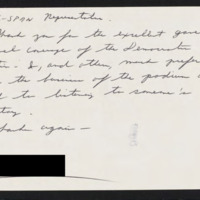 -SPAN Representative.
hank you for the excellent gave
coverage of the Democratic
. I, and others, much prefer
the business of the podium a
to listening to someone's
tory.
hank again —